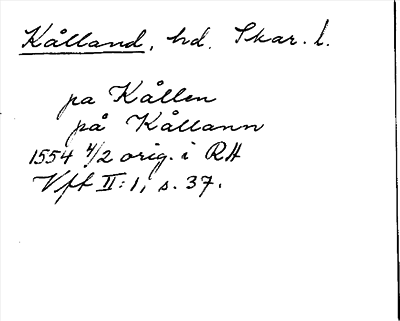 Kålland, hd. Skar. l.
pa Kållen
på Kållann
1554 4/2 orig. i RA
Vft II:1, s. 37.